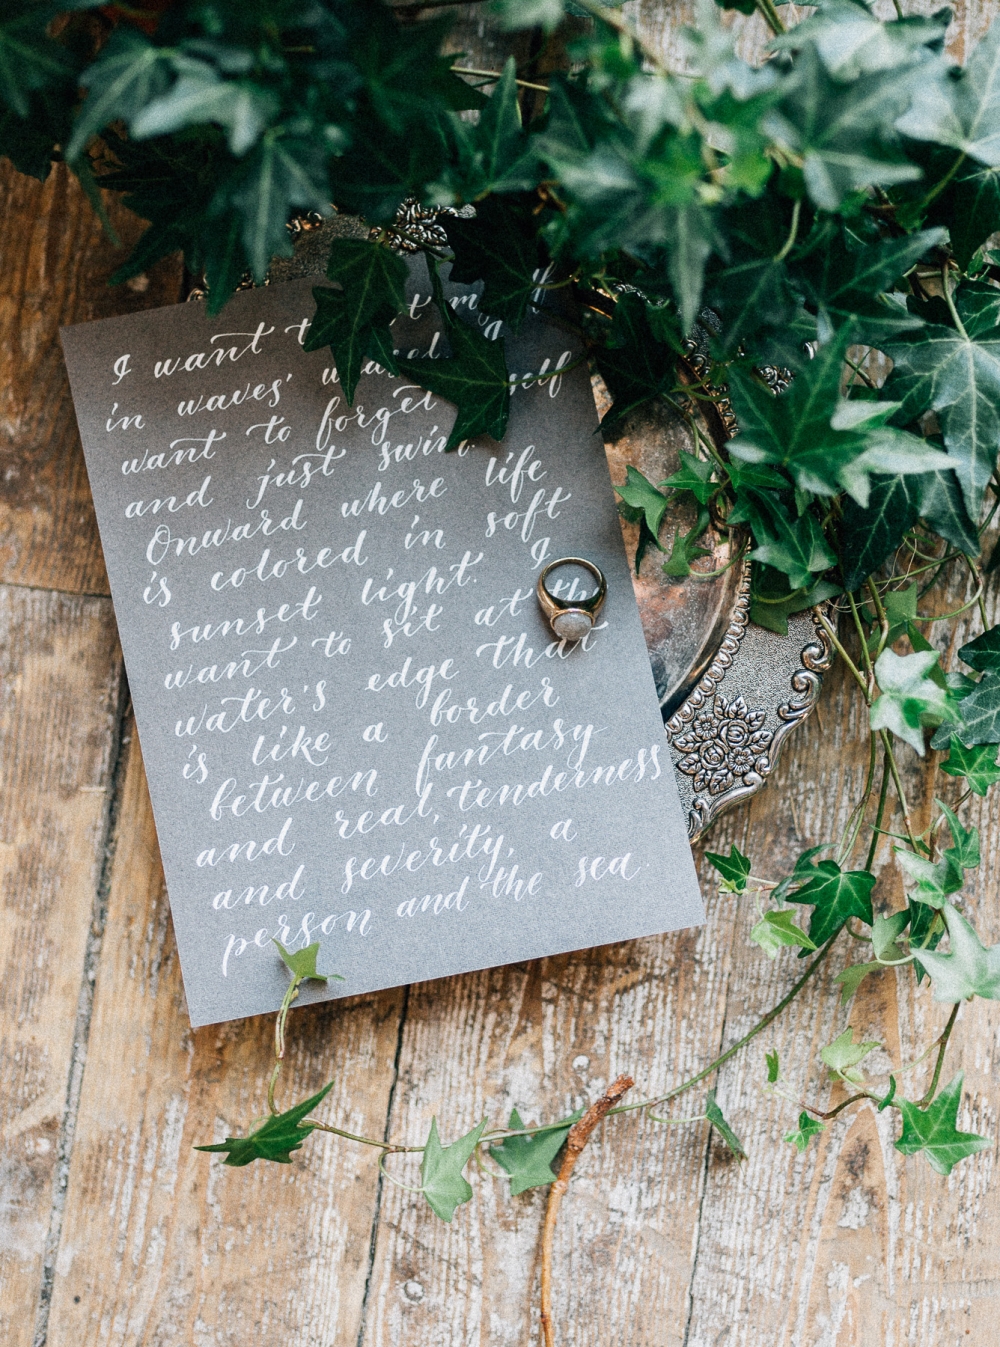 I want
in waves'
want to forget
and just swim
Onward where life
is colored in soft
sunset light. I
want to sit at the
water's edge that
is like a border
between fantasy
and real, tenderness
and severity, a
person and the sea.